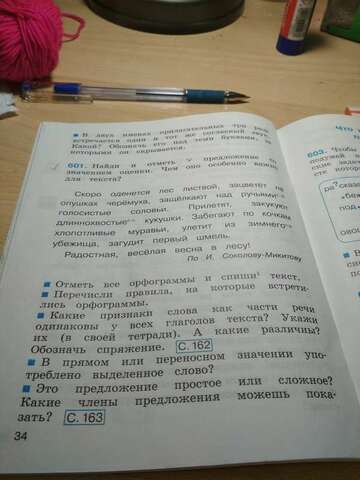 ■ В двух именах прилагательных три раза
встречается один и тот же согласный звук.
Какой? Обозначь его над теми буквами, за
которыми он скрывается.
601. Найди и отметь ∨ предложение со
значением оценки. Чем оно особенно важно
для текста?
Скоро оденется лес листвой, зацветёт на
опушках черёмуха, защёлкают над ручьями
голосистые соловьи. Прилетят, закукуют
длиннохвостые кукушки. Забегают по кочкам
хлопотливые муравьи, улетит из зимнего
убежища, загудит первый шмель.
Радостная, весёлая весна в лесу!
По И. Соколову-Микитову
■ Отметь все орфограммы и спиши текст.
■ Перечисли правила, на которые встрети-
лись орфограммы.
■ Какие признаки слова как части речи
одинаковы у всех глаголов текста? Укажи
их (в своей тетради). А какие различны?
Обозначь спряжение. С. 162
■ В прямом или переносном значении упо-
треблено выделенное слово?
■ Это предложение простое или сложное?
Какие члены предложения можешь пока-
зать? С. 163
34
603. Чтобы